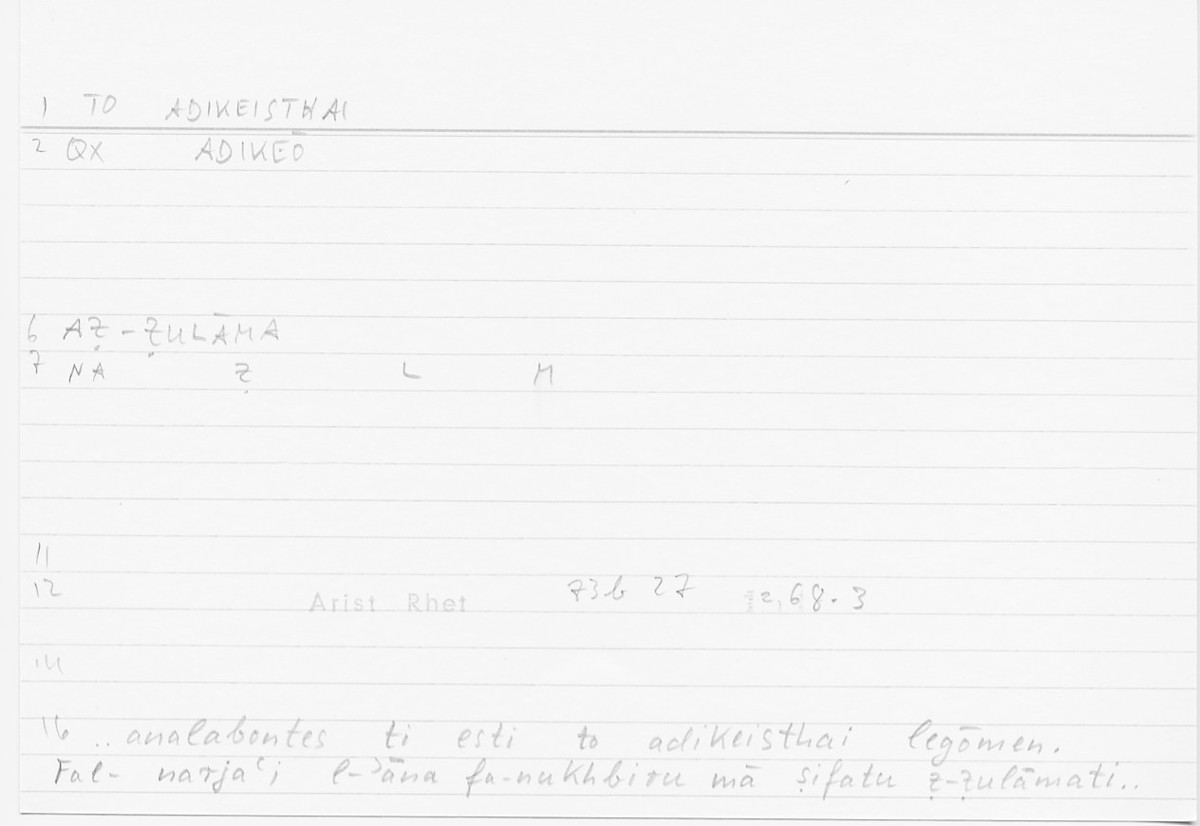 1 TO ADIKEISTHAI
2 QX ADIKEŌ
6 AẒ-ẒULĀMA
7 NA Ẓ L M
11
12 Arist Rhet 73b 27 12,68.3
14
16 .. analabontes ti esti to adikeisthai legōmen.
Fal- narjaʿi l-ʾāna fa-nukhbiru mā ṣifatu ẓ-ẓulāmati..